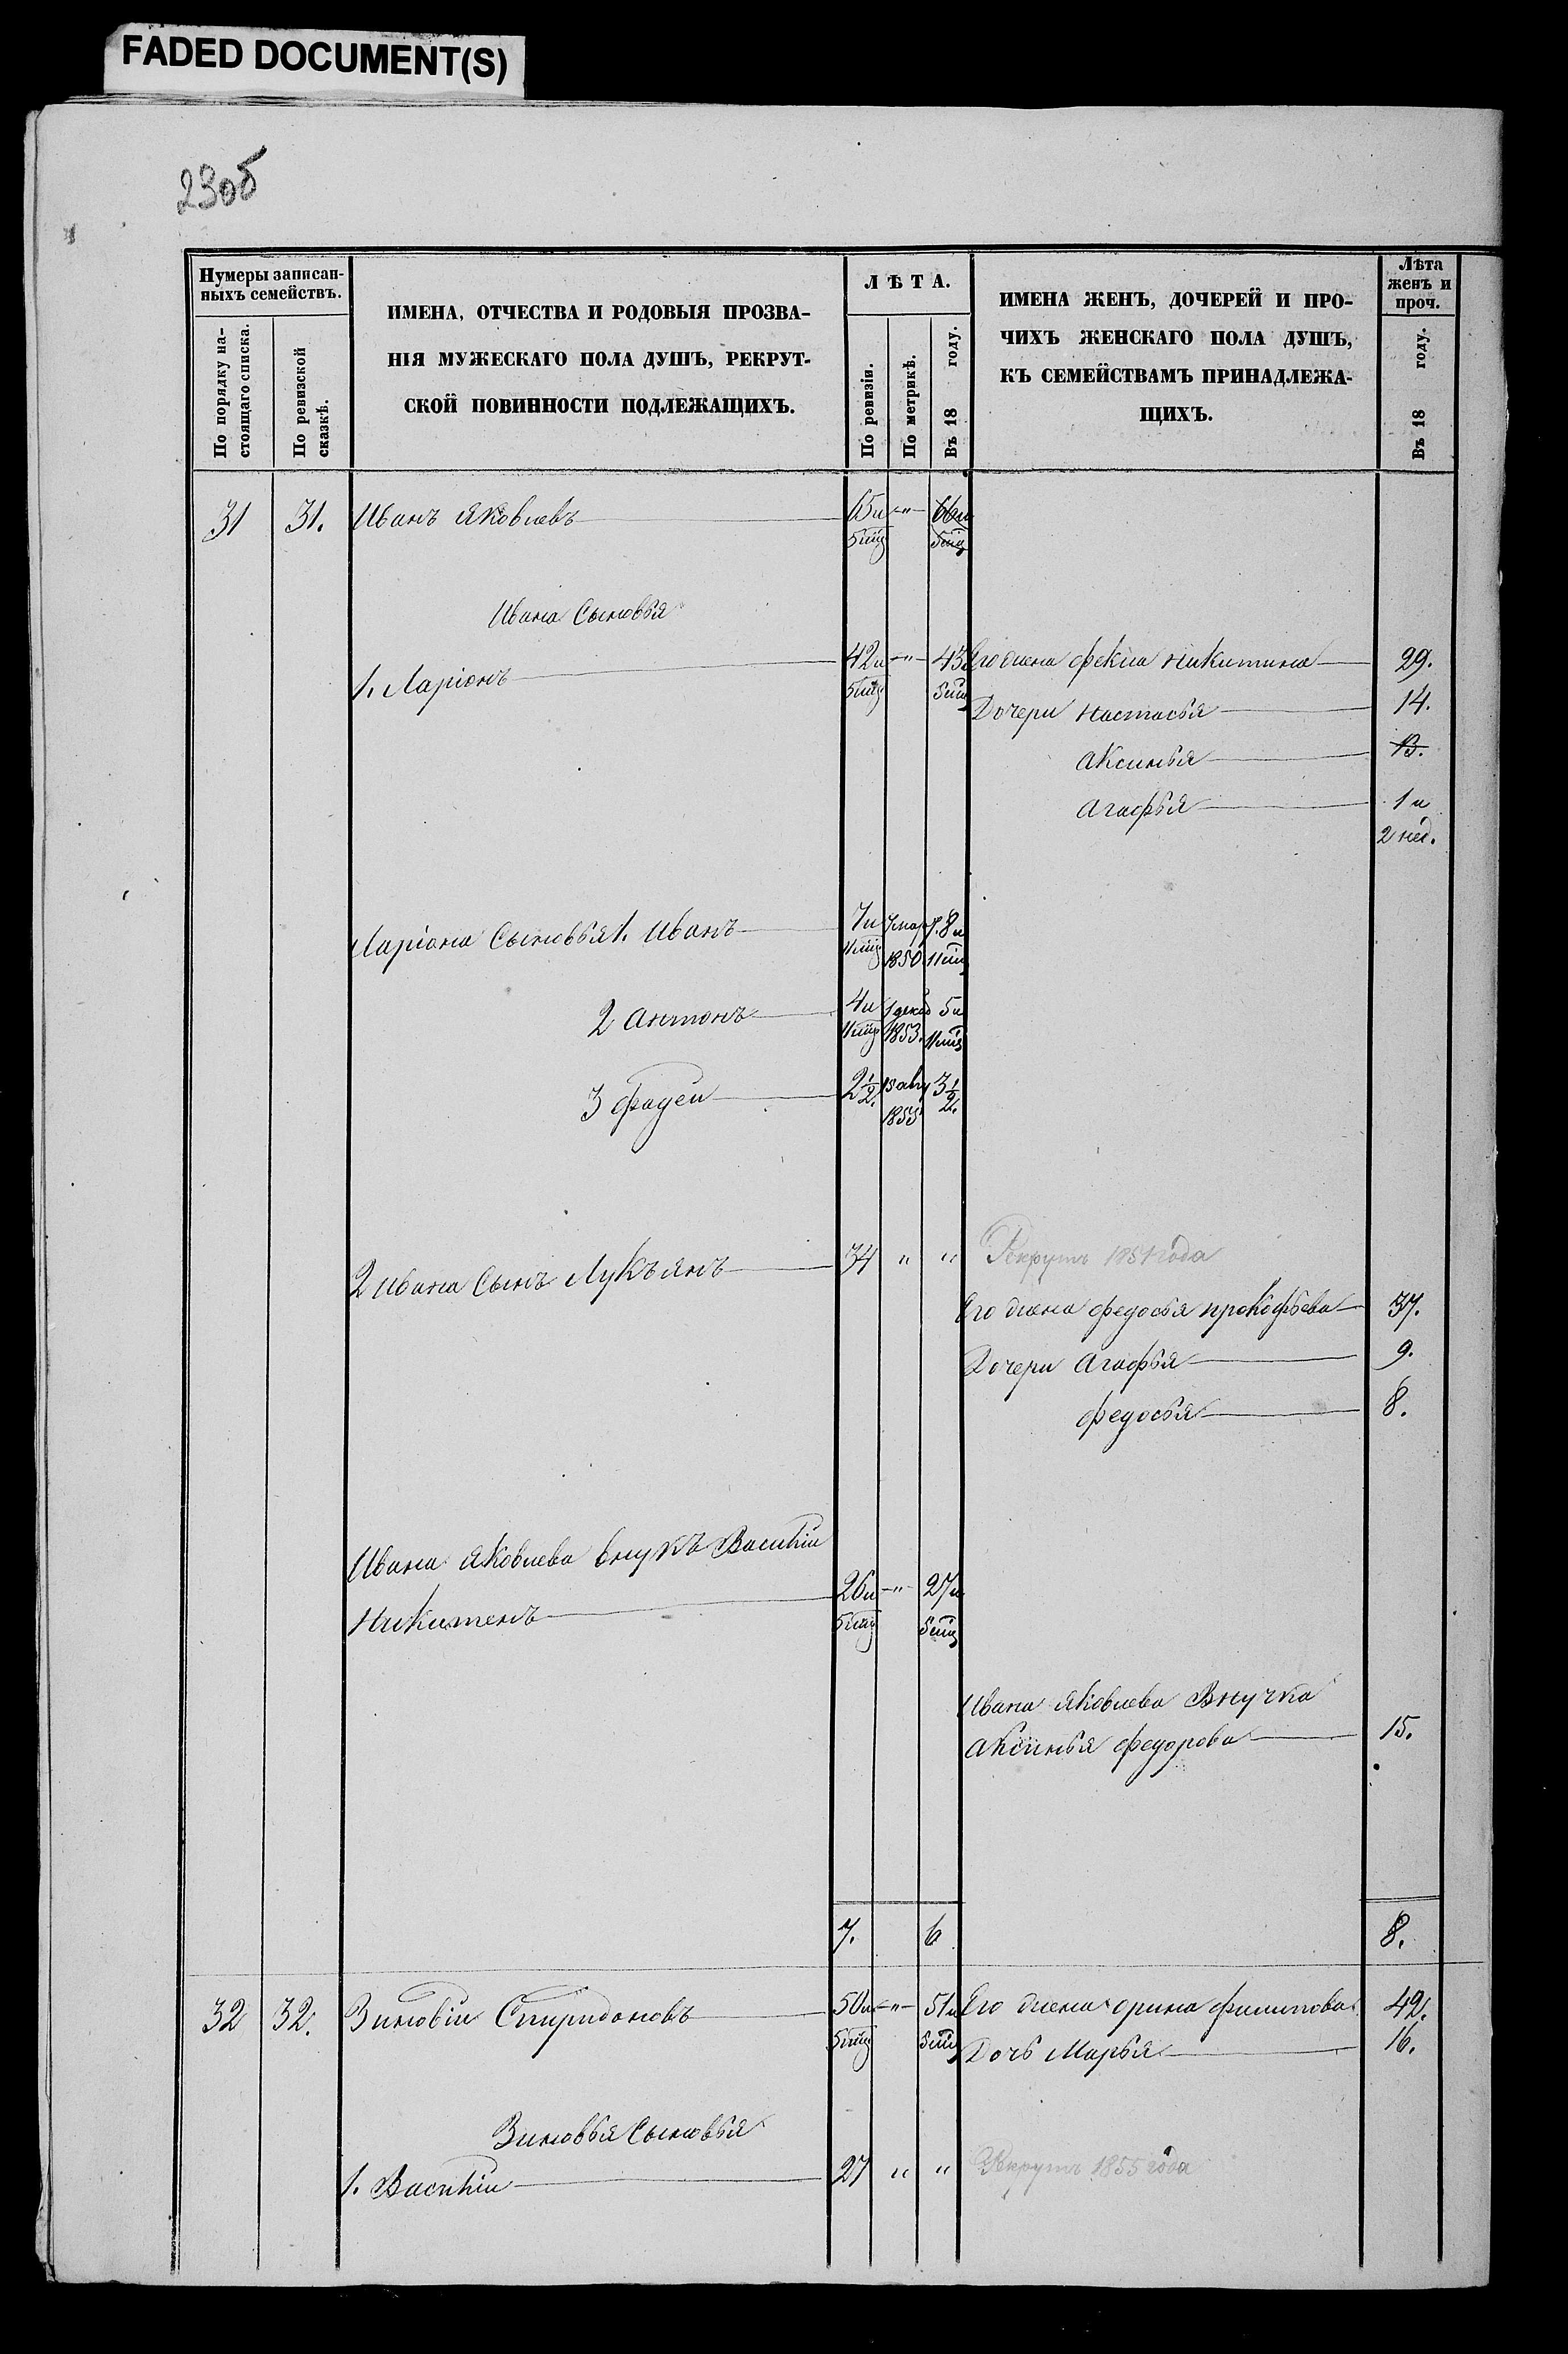 FADED DOCUMENT(S)
23об
Нумеры записан-
ныхъ семействъ.
По порядку на-
стоящаго списка.
По ревизской
сказкѣ.
ИМЕНА, ОТЧЕСТВА И РОДОВЫЯ ПРОЗВА-
НІЯ МУЖЕСКАГО ПОЛА ДУШЪ, РЕКРУТ-
СКОЙ ПОВИННОСТИ ПОДЛЕЖАЩИХЪ.
ЛѢТА.
По ревизіи.
По метрикѣ.
Въ 18 году.
ИМЕНА ЖЕНЪ, ДОЧЕРЕЙ И ПРО-
ЧИХЪ ЖЕНСКАГО ПОЛА ДУШЪ,
КЪ СЕМЕЙСТВАМЪ ПРИНАДЛЕЖА-
ЩИХЪ.
Лѣта
женъ и
проч.
Въ 18 году.
31 31. Иванъ Яковлевъ 65и " 66и
5мц 5мц
Ивана Сыновья
1. Ларіонъ 42и " 43и Его жена Фекла Никитина 29.
5мц 5мц
Дочери Настасья 14.
Аксинья 13.
Агафья 1 и
2 нед.
Ларіона Сыновья 1. Иванъ 7и 7мар. 8и
11мц 1850 11мц
2 Антонъ 4и 1декаб 5и
11мц 1853. 11мц
3 Фадеи 2 1/2. 15авг 3 1/2.
1855
2 Ивана Сынъ Лукъянъ 34 " " Рекрутъ 1854 года
Его жена Федосья Прокофьева 37.
Дочери Агафья 9.
Федосья 8.
Ивана Яковлева внукъ Василіи
Никитенъ 26и " 27и
5мц 5мц
Ивана Яковлева Внучка
Аксинья Федорова 15.
7. 6 8.
32 32. Зиновіи Спиридоновъ 50и " 51и Его жена Орина Филипова 49.
5мц 5мц Дочь Марья 16.
Зиновья Сыновья
1. Василіи 27 " " Рекрутъ 1855 года